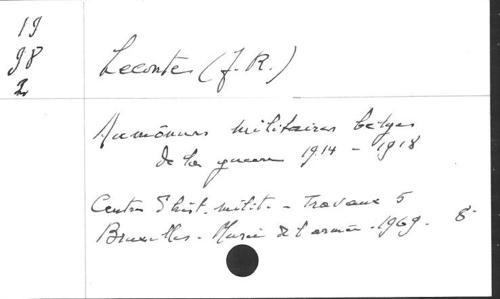 19
98
2
Leconte (J. R.)
Aumôniers militaires belges
de la guerre 1914 - 1918
Centre d'hist. milit. - Travaux 5
Bruxelles - Musée de l'armée - 1969. 8°